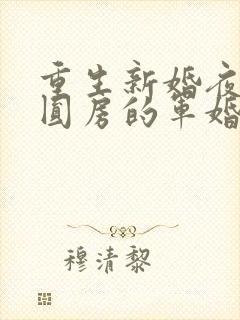 重生新婚夜
圆房的军婚
穆清黎